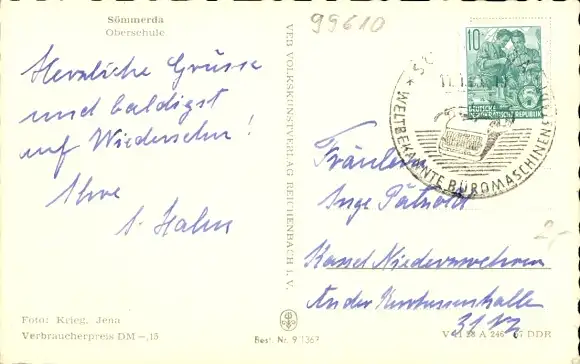 Sömmerda
Oberschule
99610
Herzliche Grüsse
und baldigst
auf Wiedersehn!
Ihre
S. Hahn
VEB VOLKSKUNSTVERLAG REICHENBACH I. V.
10
DEUTSCHE
DEMOKRATISCHE REPUBLIK
WELTBEKANNTE BÜROMASCHINEN
Fräulein
Inge
Kassel Niederzwehren
An der
2,-
Foto: Krieg, Jena
Verbraucherpreis DM -,15
Best. Nr. 9 1367
A 246 DDR